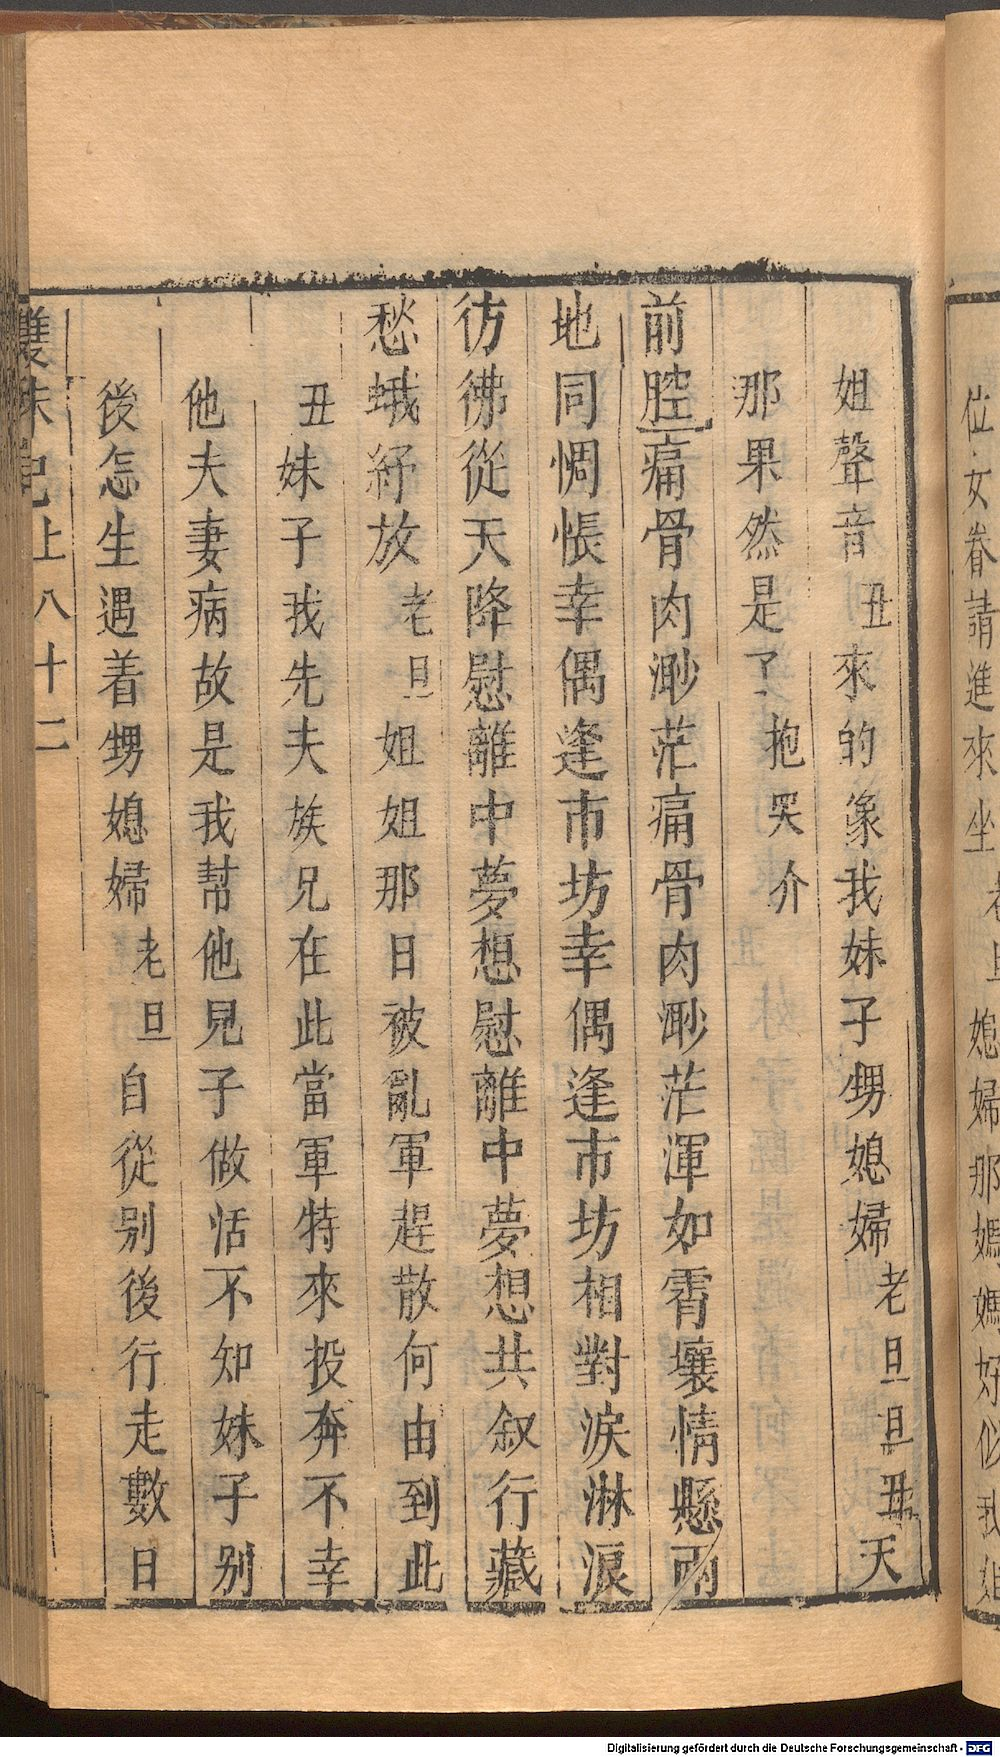 位女眷請進來坐老旦媳婦那媽媽好似我姐
姐聲音丑來的像我妹子甥媳婦老旦旦丑天
那果然是了抱哭介
前腔痛骨肉渺茫痛骨肉渺茫渾如霄壤情懸兩
地同惆悵幸偶逢市坊幸偶逢市坊相對淚淋浪
彷彿從天降慰離中夢想慰離中夢想共叙行藏
愁蛾紓放老旦姐姐那日被亂軍趕散何由到此
丑妹子我先夫族兄在此當軍特來投奔不幸
他夫妻病故是我幇他見子做活不知妹子别
後怎生遇着甥媳婦老旦自從别後行走數日
雙珠記上八十二
Digitalisierung gefördert durch die Deutsche Forschungsgemeinschaft - DFG